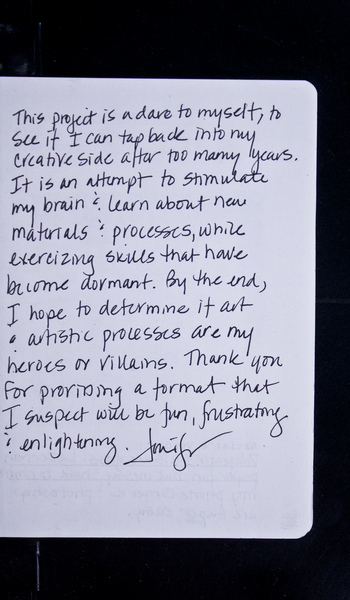 This project is a dare to myself, to
see if I can tap back into my
creative side after too many years.
It is an attempt to stimulate
my brain & learn about new
materials & processes, while
exercizing skills that have
become dormant. By the end,
I hope to determine if art
& artistic processes are my
heroes or villains. Thank you
for providing a format that
I suspect will be fun, frustrating
& enlightening.